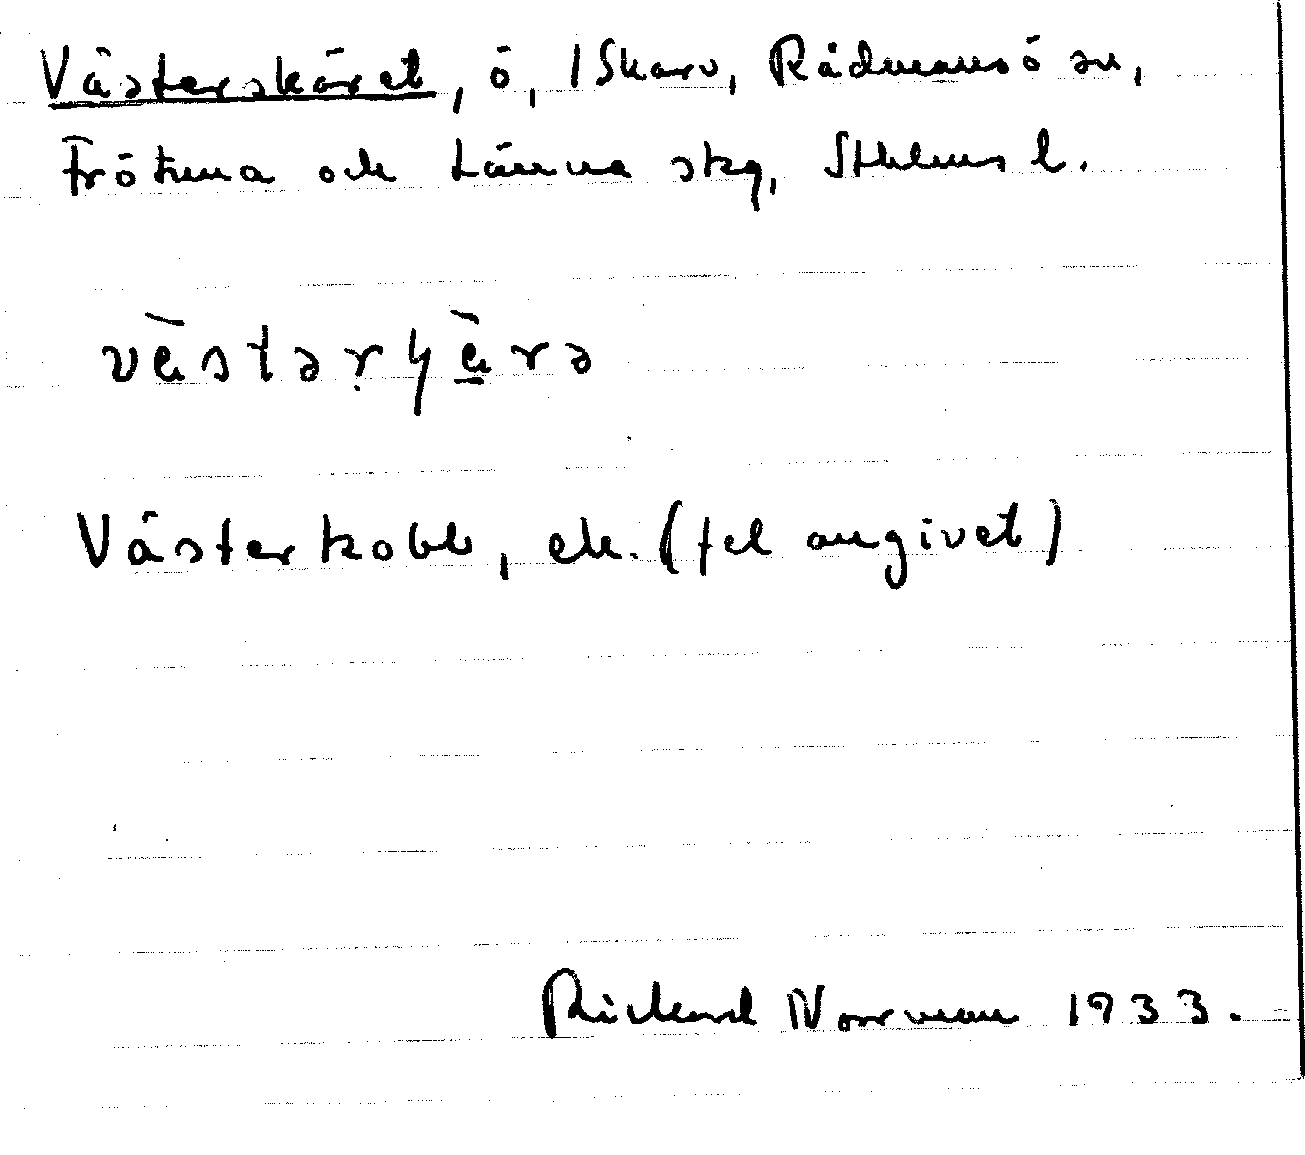 Västerskäret, ö, 1 Skarv, Rådmansö sn,
Frötuna och Länna skg, Sthlms l.
vä̀stərɥä̀rə
Västerkobb, ek. (fel angivet)
Rickard Norrman 1933.